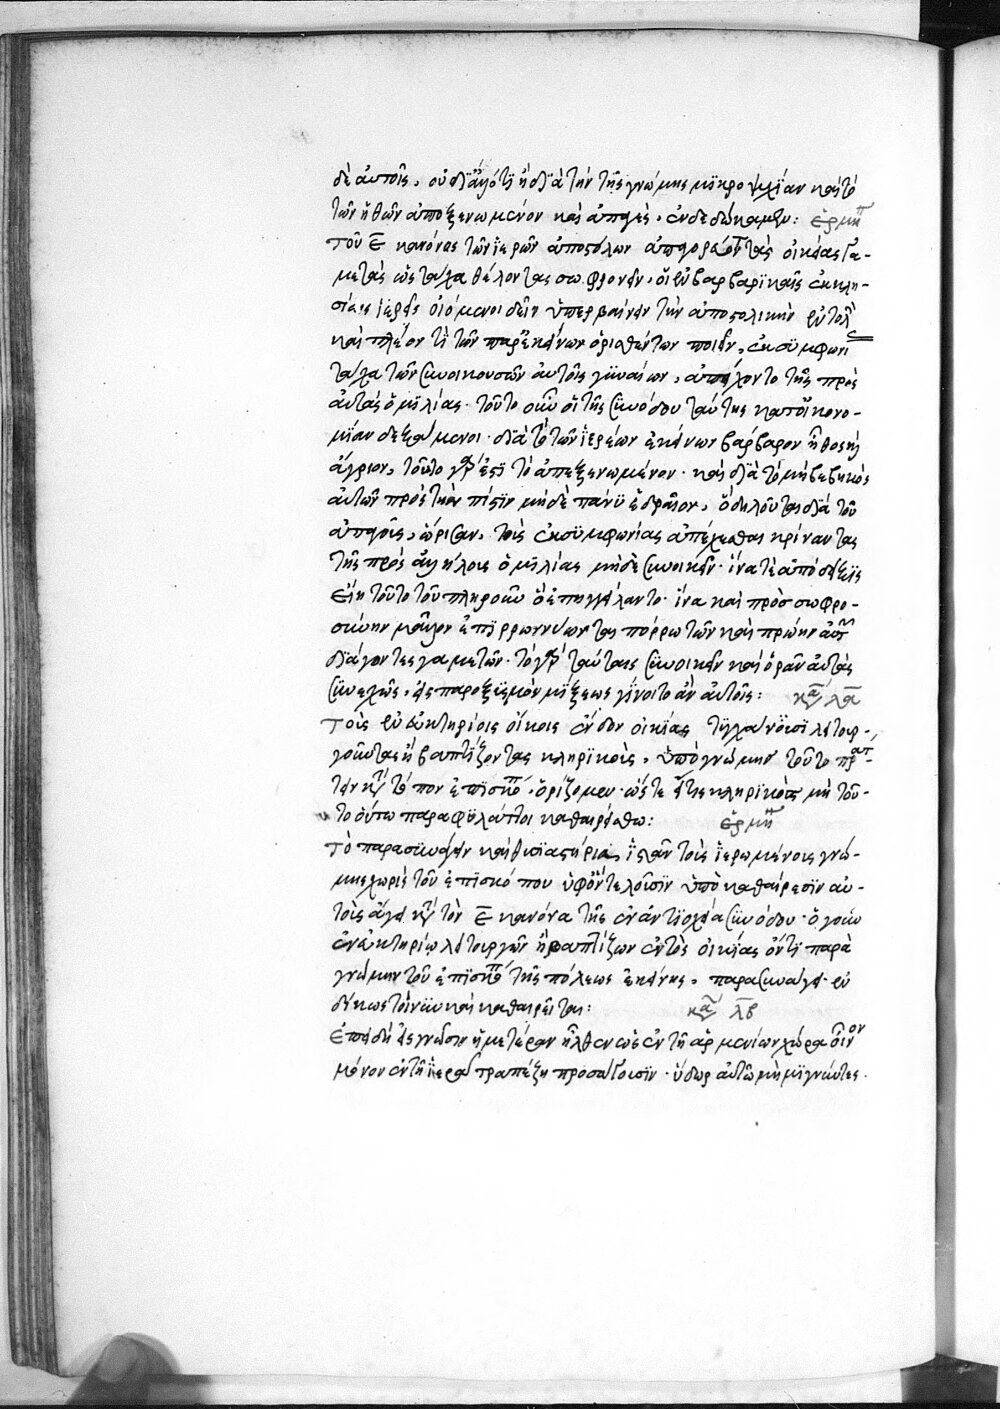 δὲ αὐτοῖς, οὐ δι' ἄλλό τι ἢ διὰ τὴν τῆς γνώμης μικροψυχίαν καὶ τὸ
τῶν ἠθῶν ἀπεξενωμένον καὶ ἀπαγὲς, ἐνδεδώκαμεν: ἑρμη
Τοῦ ε̅ κανόνος τῶν ἱερῶν ἀποστόλων ἀπαγορεύοντος τὰς οἰκείας γα-
μετὰς ὡς τάχα θέλοντας σωφρονεῖν, οἱ ἐν βαρβαρικαῖς ἐκκλη-
σίαις ἱερεῖς οἰόμενοι δεῖν ὑπερβαίνειν τὴν ἀποστολικὴν ἐντολ
καὶ πλέον τι τῶν παρ' ἐκείνων ὁρισθέντων ποιεῖν, ἐκ συμφωνί
τάχα τῶν συνοικουσῶν αὐτοῖς γυναίων, ἀπείχοντο τῆς πρὸς
αὐτὰς ὁμιλίας. τοῦτο οὖν οἱ τῆς συνόδου ταύτης κατ' οἰκονο-
μίαν δεξάμενοι. διὰ τὸ τῶν ἱερέων ἐκείνων βάρβαρον ἦθος καὶ
ἄγριον, τοῦτο γάρ ἐστι τὸ ἀπεξενωμένον. καὶ διὰ τὸ μὴ βεβηκὸς
αὐτῶν πρὸς τὴν πίστιν μηδὲ πάνυ ἑδραῖον, ὃ δηλοῦται διὰ τοῦ
ἀπαγοῖς, ὥρισαν, τοὺς ἐκ συμφωνίας ἀπέχεσθαι κρίναντας
τῆς πρὸς ἀλλήλους ὁμιλίας μηδὲ συνοικεῖν. ἵνα τὲ ἀπόδειξις
εἴη τοῦτο τοῦ πληροῦν ὃ ἐπηγγείλαντο. ἵνα καὶ πρὸς σωφρο-
σύνην μᾶλλον ἐπιρρωννύωνται πόρρω τῶν καὶ πρώην αὐτ
διάγοντες γαμετῶν. τὸ γὰρ ταύταις συνοικεῖν καὶ ὁρᾶν αὐτὰς
συνεχῶς, εἰς παροξυσμὸν μίξεως γίνοιτο ἂν αὐτοῖς: κα λα
Τοὺς ἐν εὐκτηρίοις οἴκοις ἔνδον οἰκίας τυγχάνουσι λειτουρ-
γοῦντας ἢ βαπτίζοντας κληρικοὺς, ὑπὸ γνώμης τοῦτο πρατ-
τειν κτ τόπον ἐπισκοπ ὁρίζομεν. ὥστε εἴτις κληρικὸς μὴ τοῦ-
το οὕτω παραφυλάττοι καθαιρείσθω: ἑρμη
Τὸ παρασυνάγειν καὶ θυσιαστήρια, ἱστᾶν τοὺς ἱερωμένους γνώ-
μης χωρὶς τοῦ ἐπισκόπου ὑφ' ὃν τελοῦσιν ὑπὸ καθαίρεσιν αὐ-
τοὺς ἄγει κτ τὸν ε̅ κανόνα τῆς ἐν ἀντιοχεία συνόδου. ὁ γοῦν
ἐν εὐκτηρίῳ λειτουργῶν ἢ βαπτίζων ἐντὸς οἰκίας ὄντι παρὰ
γνώμην τοῦ ἐπισκόπ τῆς πόλεως ἐκείνης, παρασυνάγει. ἐν
δίκως τοίνυν καὶ καθαιρεῖται: κα λβ
Ἐπειδὴ εἰς γνῶσιν ἡμετέραν ἦλθεν ὡς ἐν τῇ ἀρμενίων χώρᾳ οἶνον
μόνον ἐν τῇ ἱερᾷ τραπέζῃ προσάγουσιν. ὕδωρ αὐτῷ μὴ μιγνύντες.